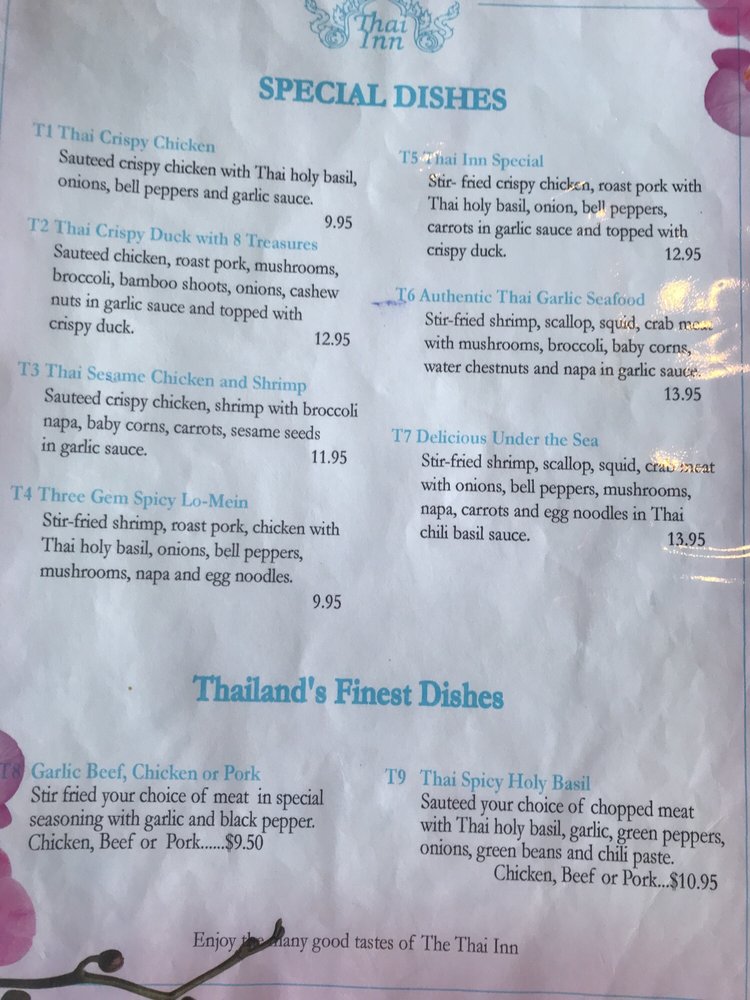 Thai
Inn
SPECIAL DISHES
T1 Thai Crispy Chicken
Sauteed crispy chicken with Thai holy basil,
onions, bell peppers and garlic sauce.
9.95
T2 Thai Crispy Duck with 8 Treasures
Sauteed chicken, roast pork, mushrooms,
broccoli, bamboo shoots, onions, cashew
nuts in garlic sauce and topped with
crispy duck.
12.95
T3 Thai Sesame Chicken and Shrimp
Sauteed crispy chicken, shrimp with broccoli
napa, baby corns, carrots, sesame seeds
in garlic sauce.
11.95
T4 Three Gem Spicy Lo-Mein
Stir-fried shrimp, roast pork, chicken with
Thai holy basil, onions, bell peppers,
mushrooms, napa and egg noodles.
9.95
T5 Thai Inn Special
Stir- fried crispy chicken, roast pork with
Thai holy basil, onion, bell peppers,
carrots in garlic sauce and topped with
crispy duck.
12.95
T6 Authentic Thai Garlic Seafood
Stir-fried shrimp, scallop, squid, crab meat
with mushrooms, broccoli, baby corns,
water chestnuts and napa in garlic sauce.
13.95
T7 Delicious Under the Sea
Stir-fried shrimp, scallop, squid, crab meat
with onions, bell peppers, mushrooms,
napa, carrots and egg noodles in Thai
chili basil sauce.
13.95
Thailand's Finest Dishes
T8 Garlic Beef, Chicken or Pork
Stir fried your choice of meat in special
seasoning with garlic and black pepper.
Chicken, Beef or Pork......$9.50
T9 Thai Spicy Holy Basil
Sauteed your choice of chopped meat
with Thai holy basil, garlic, green peppers,
onions, green beans and chili paste.
Chicken, Beef or Pork...$10.95
Enjoy the many good tastes of The Thai Inn